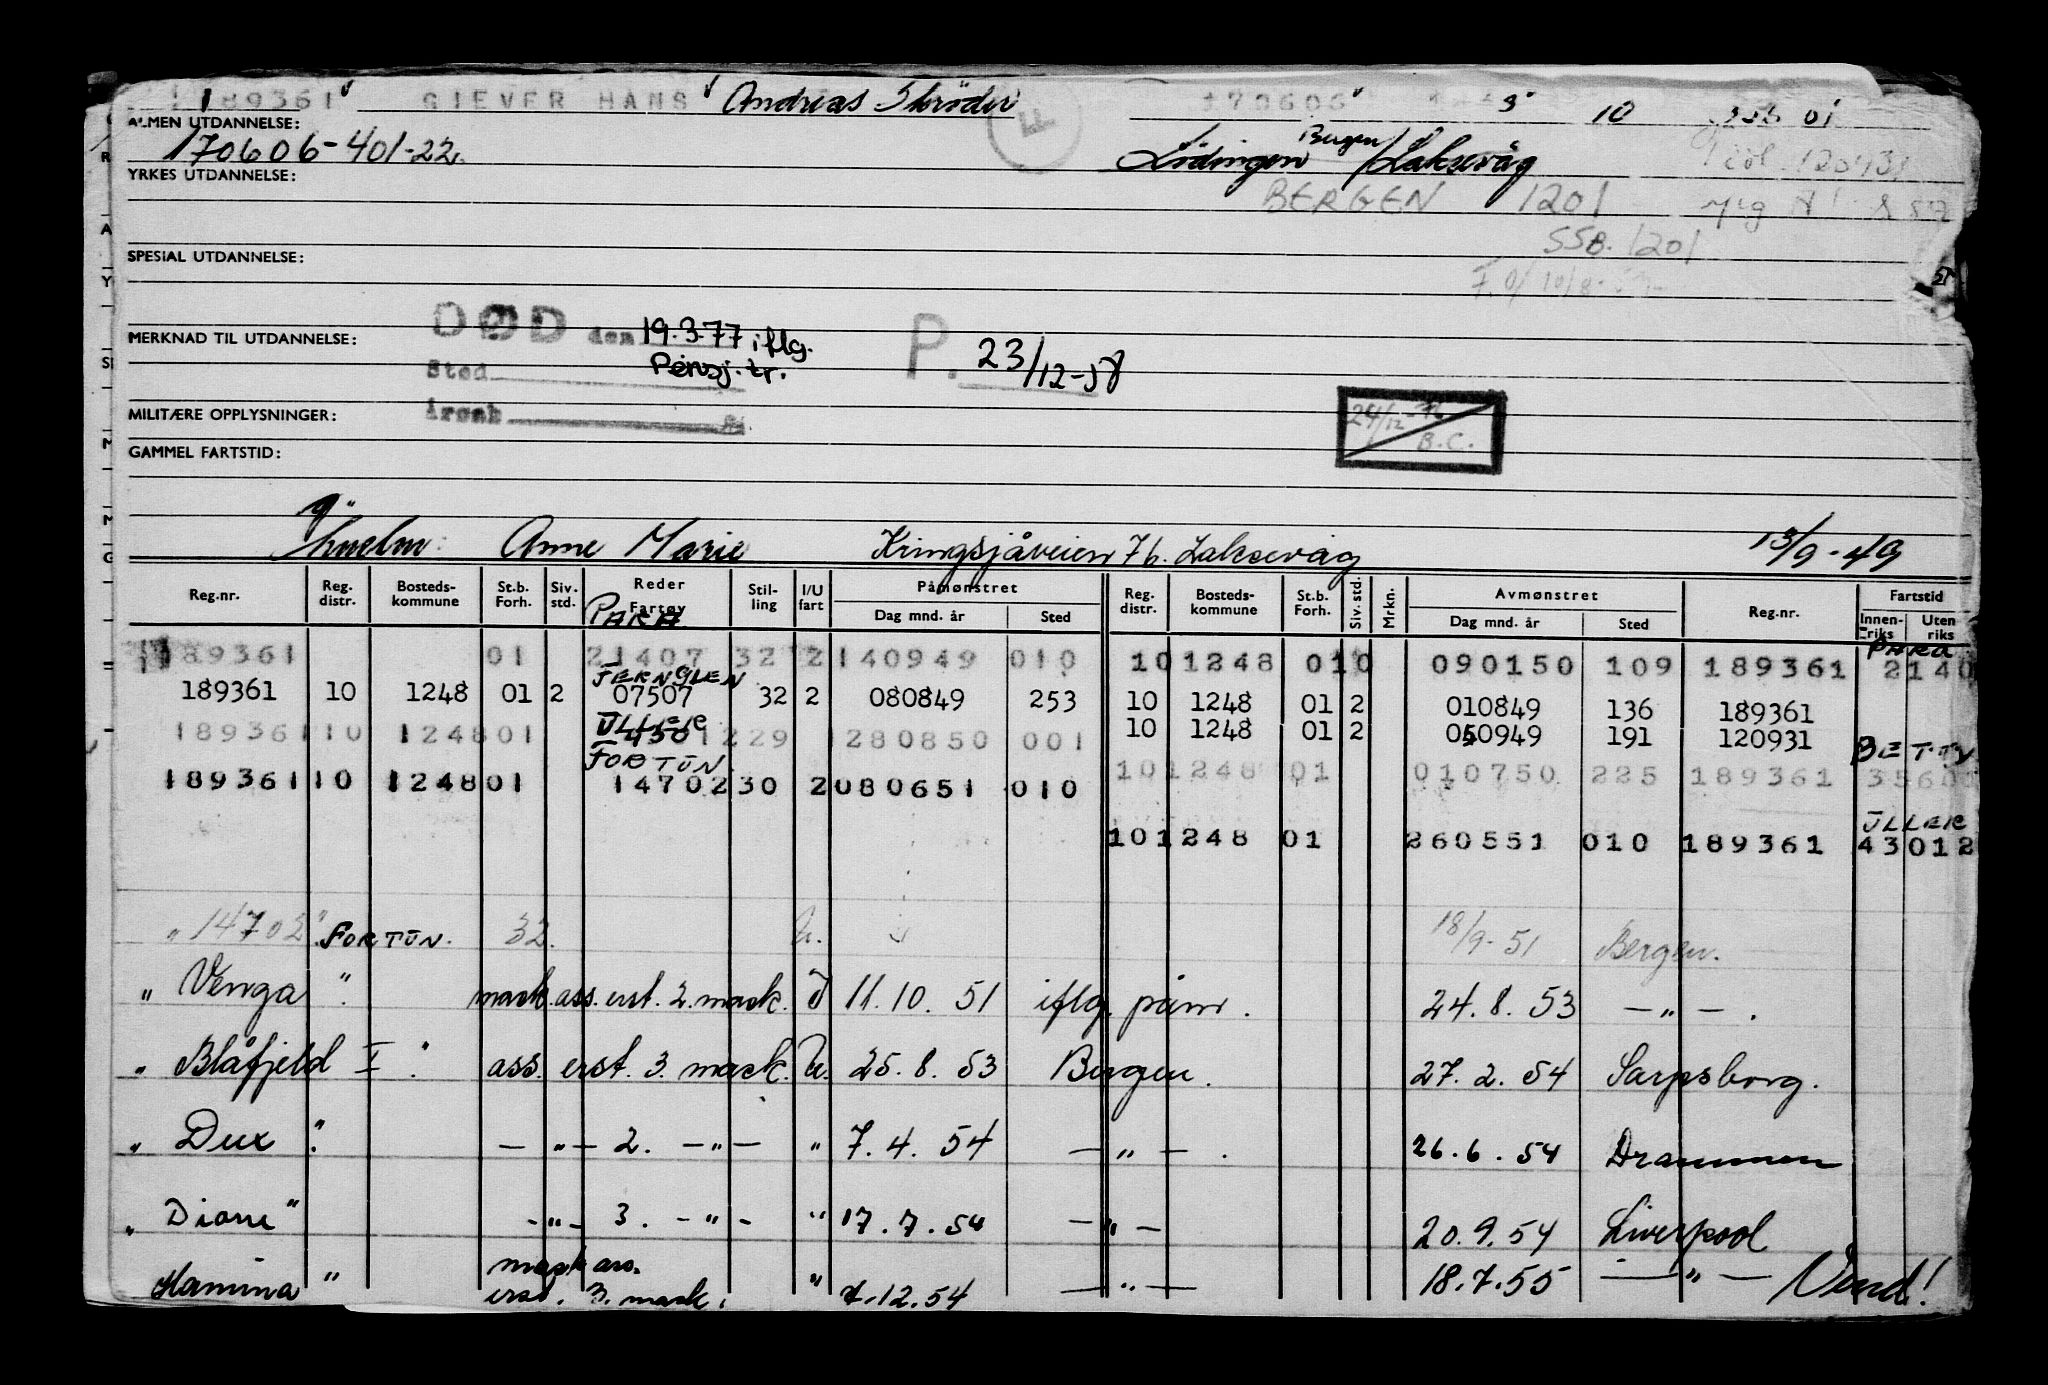 189361 GIEVER HANS Andreas Skrøder 170606 3 10 01
ALMEN UTDANNELSE:
170606-401-22. Lödingen Bergen/Laksevåg
YRKES UTDANNELSE:
BERGEN 1201
SSB. 1201
SPESIAL UTDANNELSE:
MERKNAD TIL UTDANNELSE: DØD den 19.3.77 iflg. P. 23/12-58
Sted Pensj. tr.
MILITÆRE OPPLYSNINGER: årsak
24/12-76
B.C.
GAMMEL FARTSTID:
g. Anne Marie Kringsjåveien 76. Laksevåg 13/9-49
Reg.nr. Reg. distr. Bosteds-kommune St.b. Forh. Siv. std. Reder Fartøy Stil-ling I/U fart Påmønstret Dag mnd. år Sted Reg. distr. Bosteds-kommune St.b. Forh. Siv. std. Mrkn. Avmønstret Dag mnd. år Sted Reg.nr. Fartstid Innen-riks Uten riks
PARA PARA
189361 01 21407 32 2 140949 010 10 1248 01 0 090150 109 189361 2140
JERNGLEN
189361 10 1248 01 2 07507 32 2 080849 253 10 1248 01 2 010849 136 189361
ULLER 10 1248 01 2 050949 191 120931 BETTY
189361 10 1248 01 43012 29 280850 001
FORTUN. 10 1248 01 010750 225 189361 3560
189361 10 1248 01 14702 30 2 080651 010
ULLER
10 1248 01 260551 010 189361 43012
"14702" FORTUN. 32. U. 18/9-51 Bergen.
"Venga" mask.ass. erst. 2. mask. I 11.10.51 iflg. påm. 24.8.53 —"—.
"Blåfjeld I". ass. erst. 3. mask. U. 25.8.53 Bergen. 27.2.54 Sarpsborg.
"Dux". —"— 2. —"— " 7.4.54 —"—. 26.6.54 Drammen
"Diane" —"— 3. —"— " 17.7.54 —"— 20.9.54 Liverpool
mask ass.
Hamina" erst. 3. mask. " 7.12.54 —"— 18.7.55 —"— Vend!